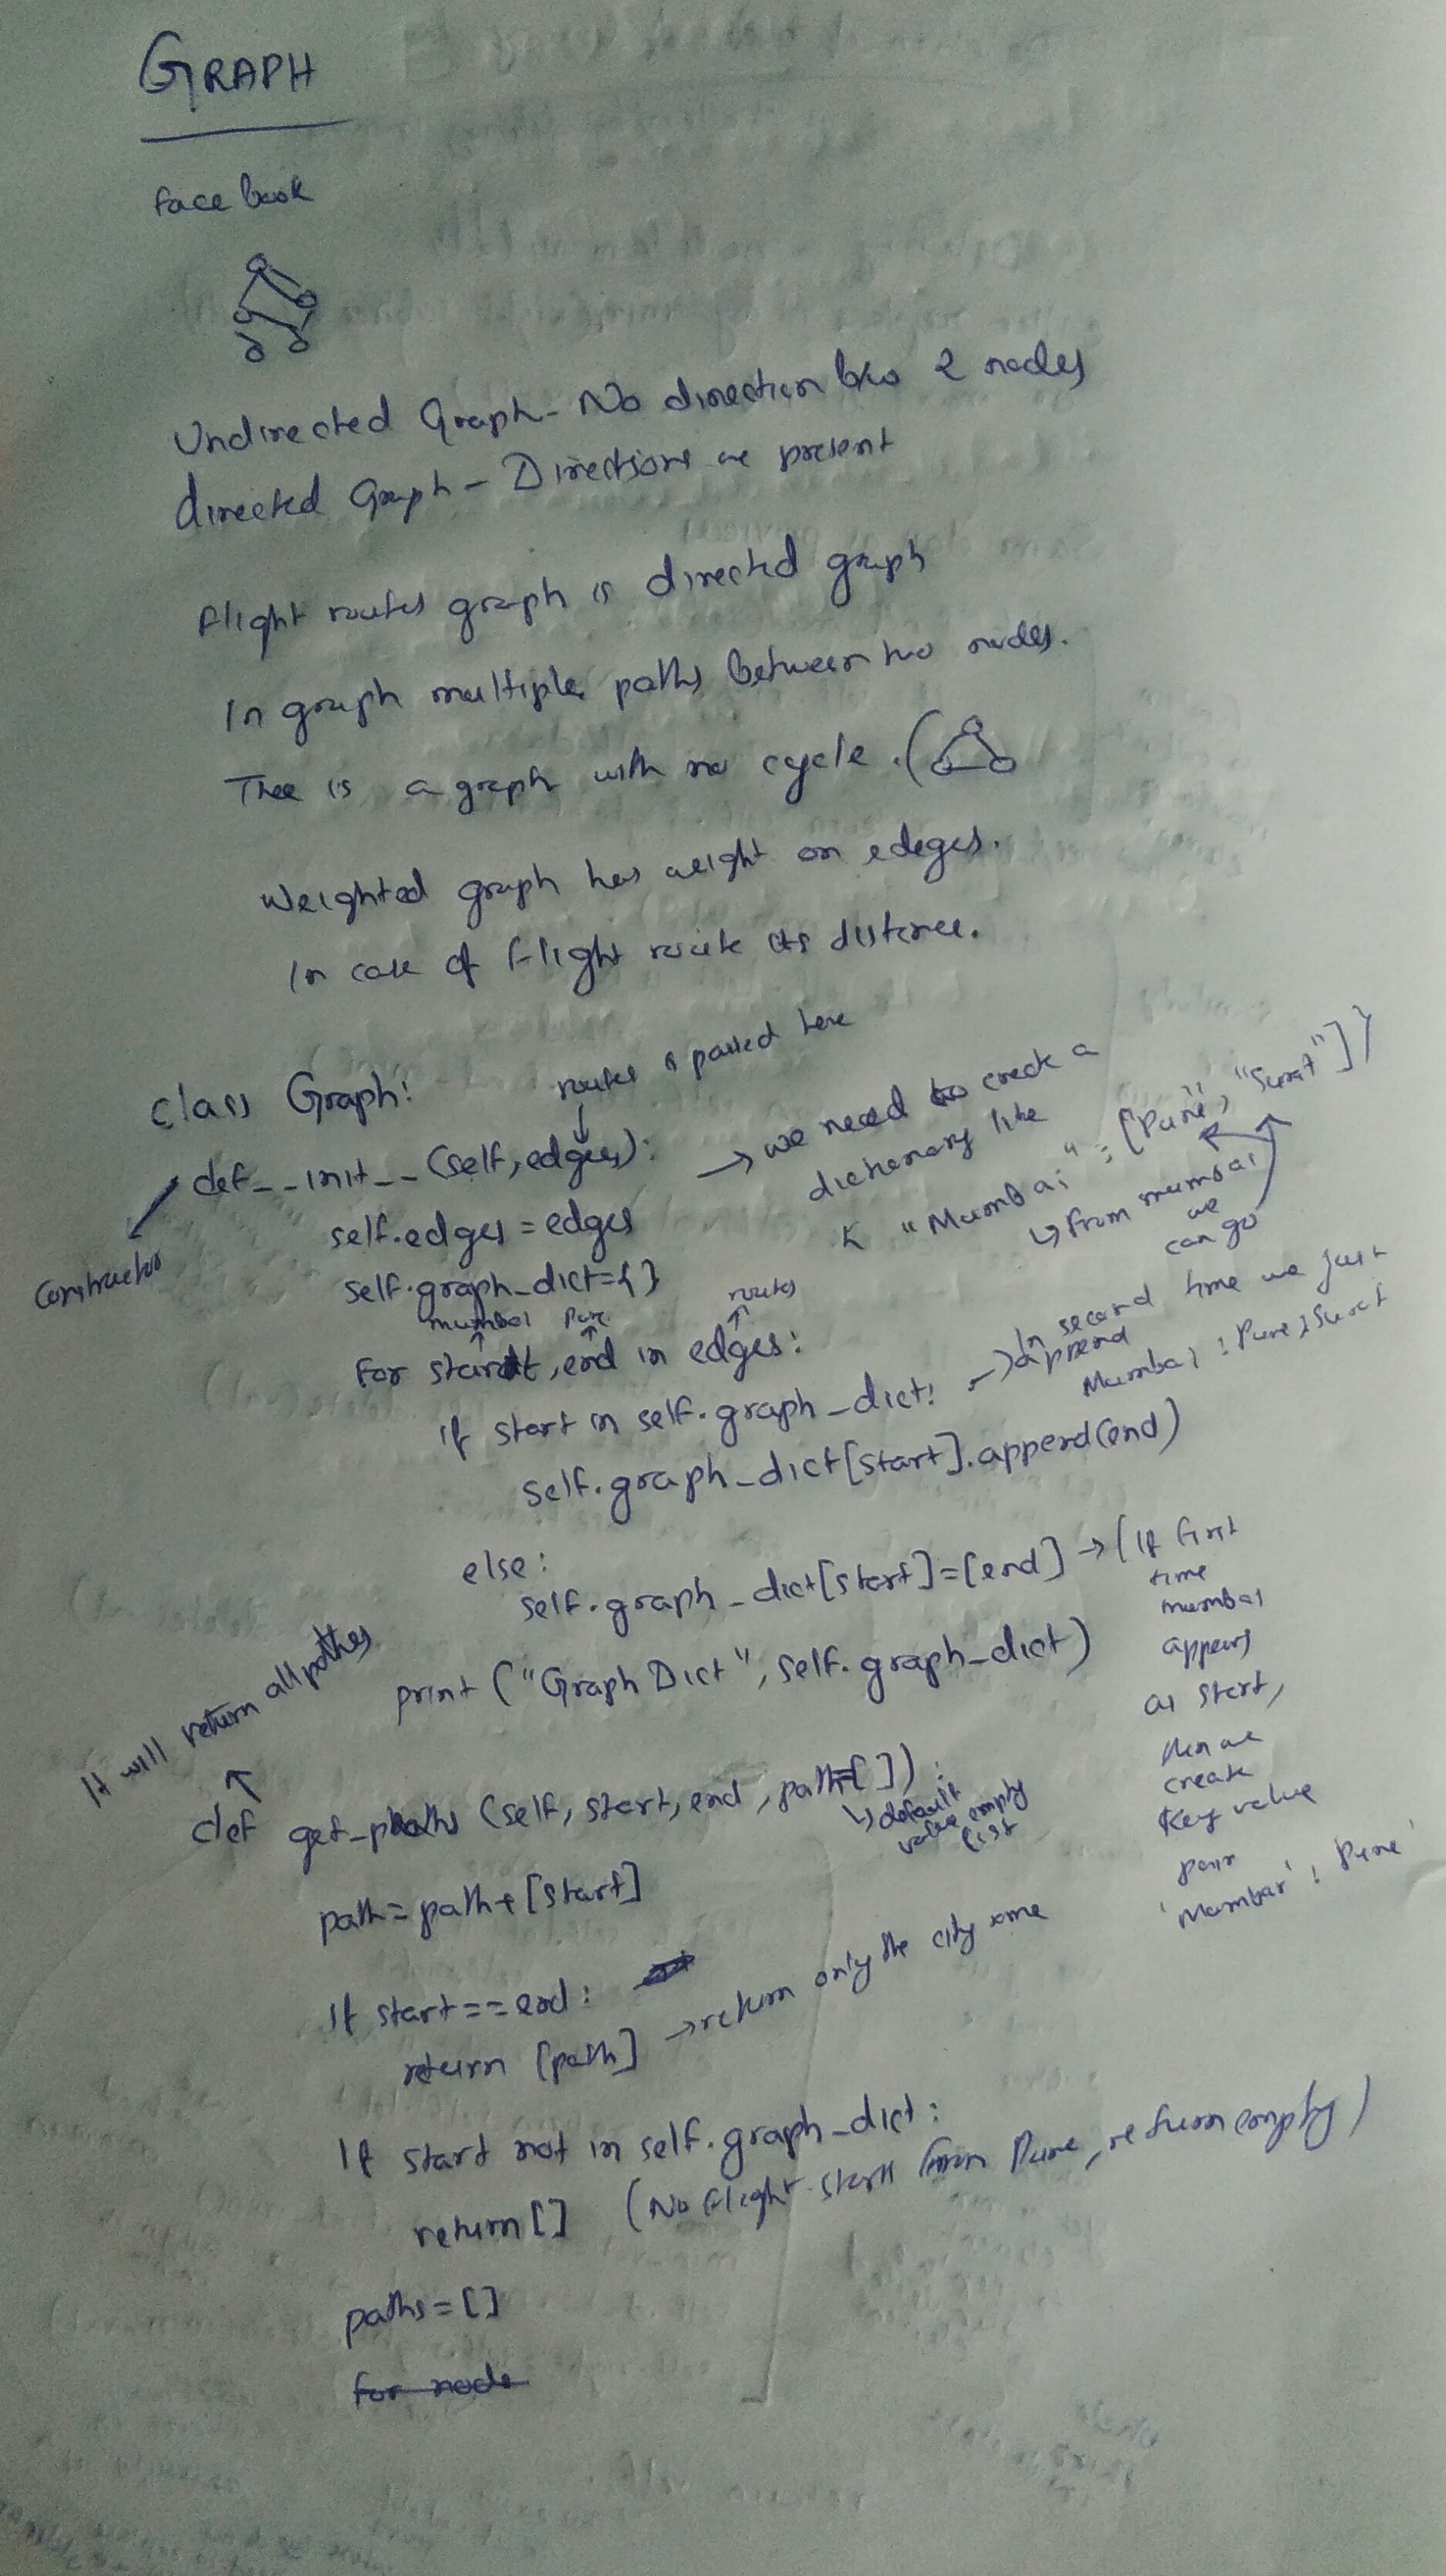 GRAPH
face book
Undirected Graph - No direction b/w 2 nodes
directed Graph - Directions are present
Flight routes graph is directed graph
In graph multiple paths between two nodes.
Thee is a graph with no cycle . (
Weighted graph has weight on edeges.
In case of flight route its distance.
routes is passed here
class Graph:
def __init__ (self, edges):
constructor
→ we need to creck a
dictionary like
{ "Mumbai" : ["Pune", "Surat"] }
↳ from mumbai
we
can go
self.edges = edges
self.graph_dict={}
mumbai Pune routes
for start, end in edges:
if start in self.graph_dict:
→ In second time we just
append
Mumbai : Pune, Surat
self.graph_dict[start].append(end)
else:
self.graph_dict[start]=[end] → (If first
time
mumbai
appears
as start,
then we
create
key value
pair
'Mumbai' : 'Pune'
print ("Graph Dict", self.graph_dict)
It will return all pathes
def get_paths (self, start, end, path=[]):
↳ default
value empty
list
path = path + [start]
If start == end:
return [path] → return only the city name
If start not in self.graph_dict:
return [] (No flight start from Pune, return empty)
paths = []
for node